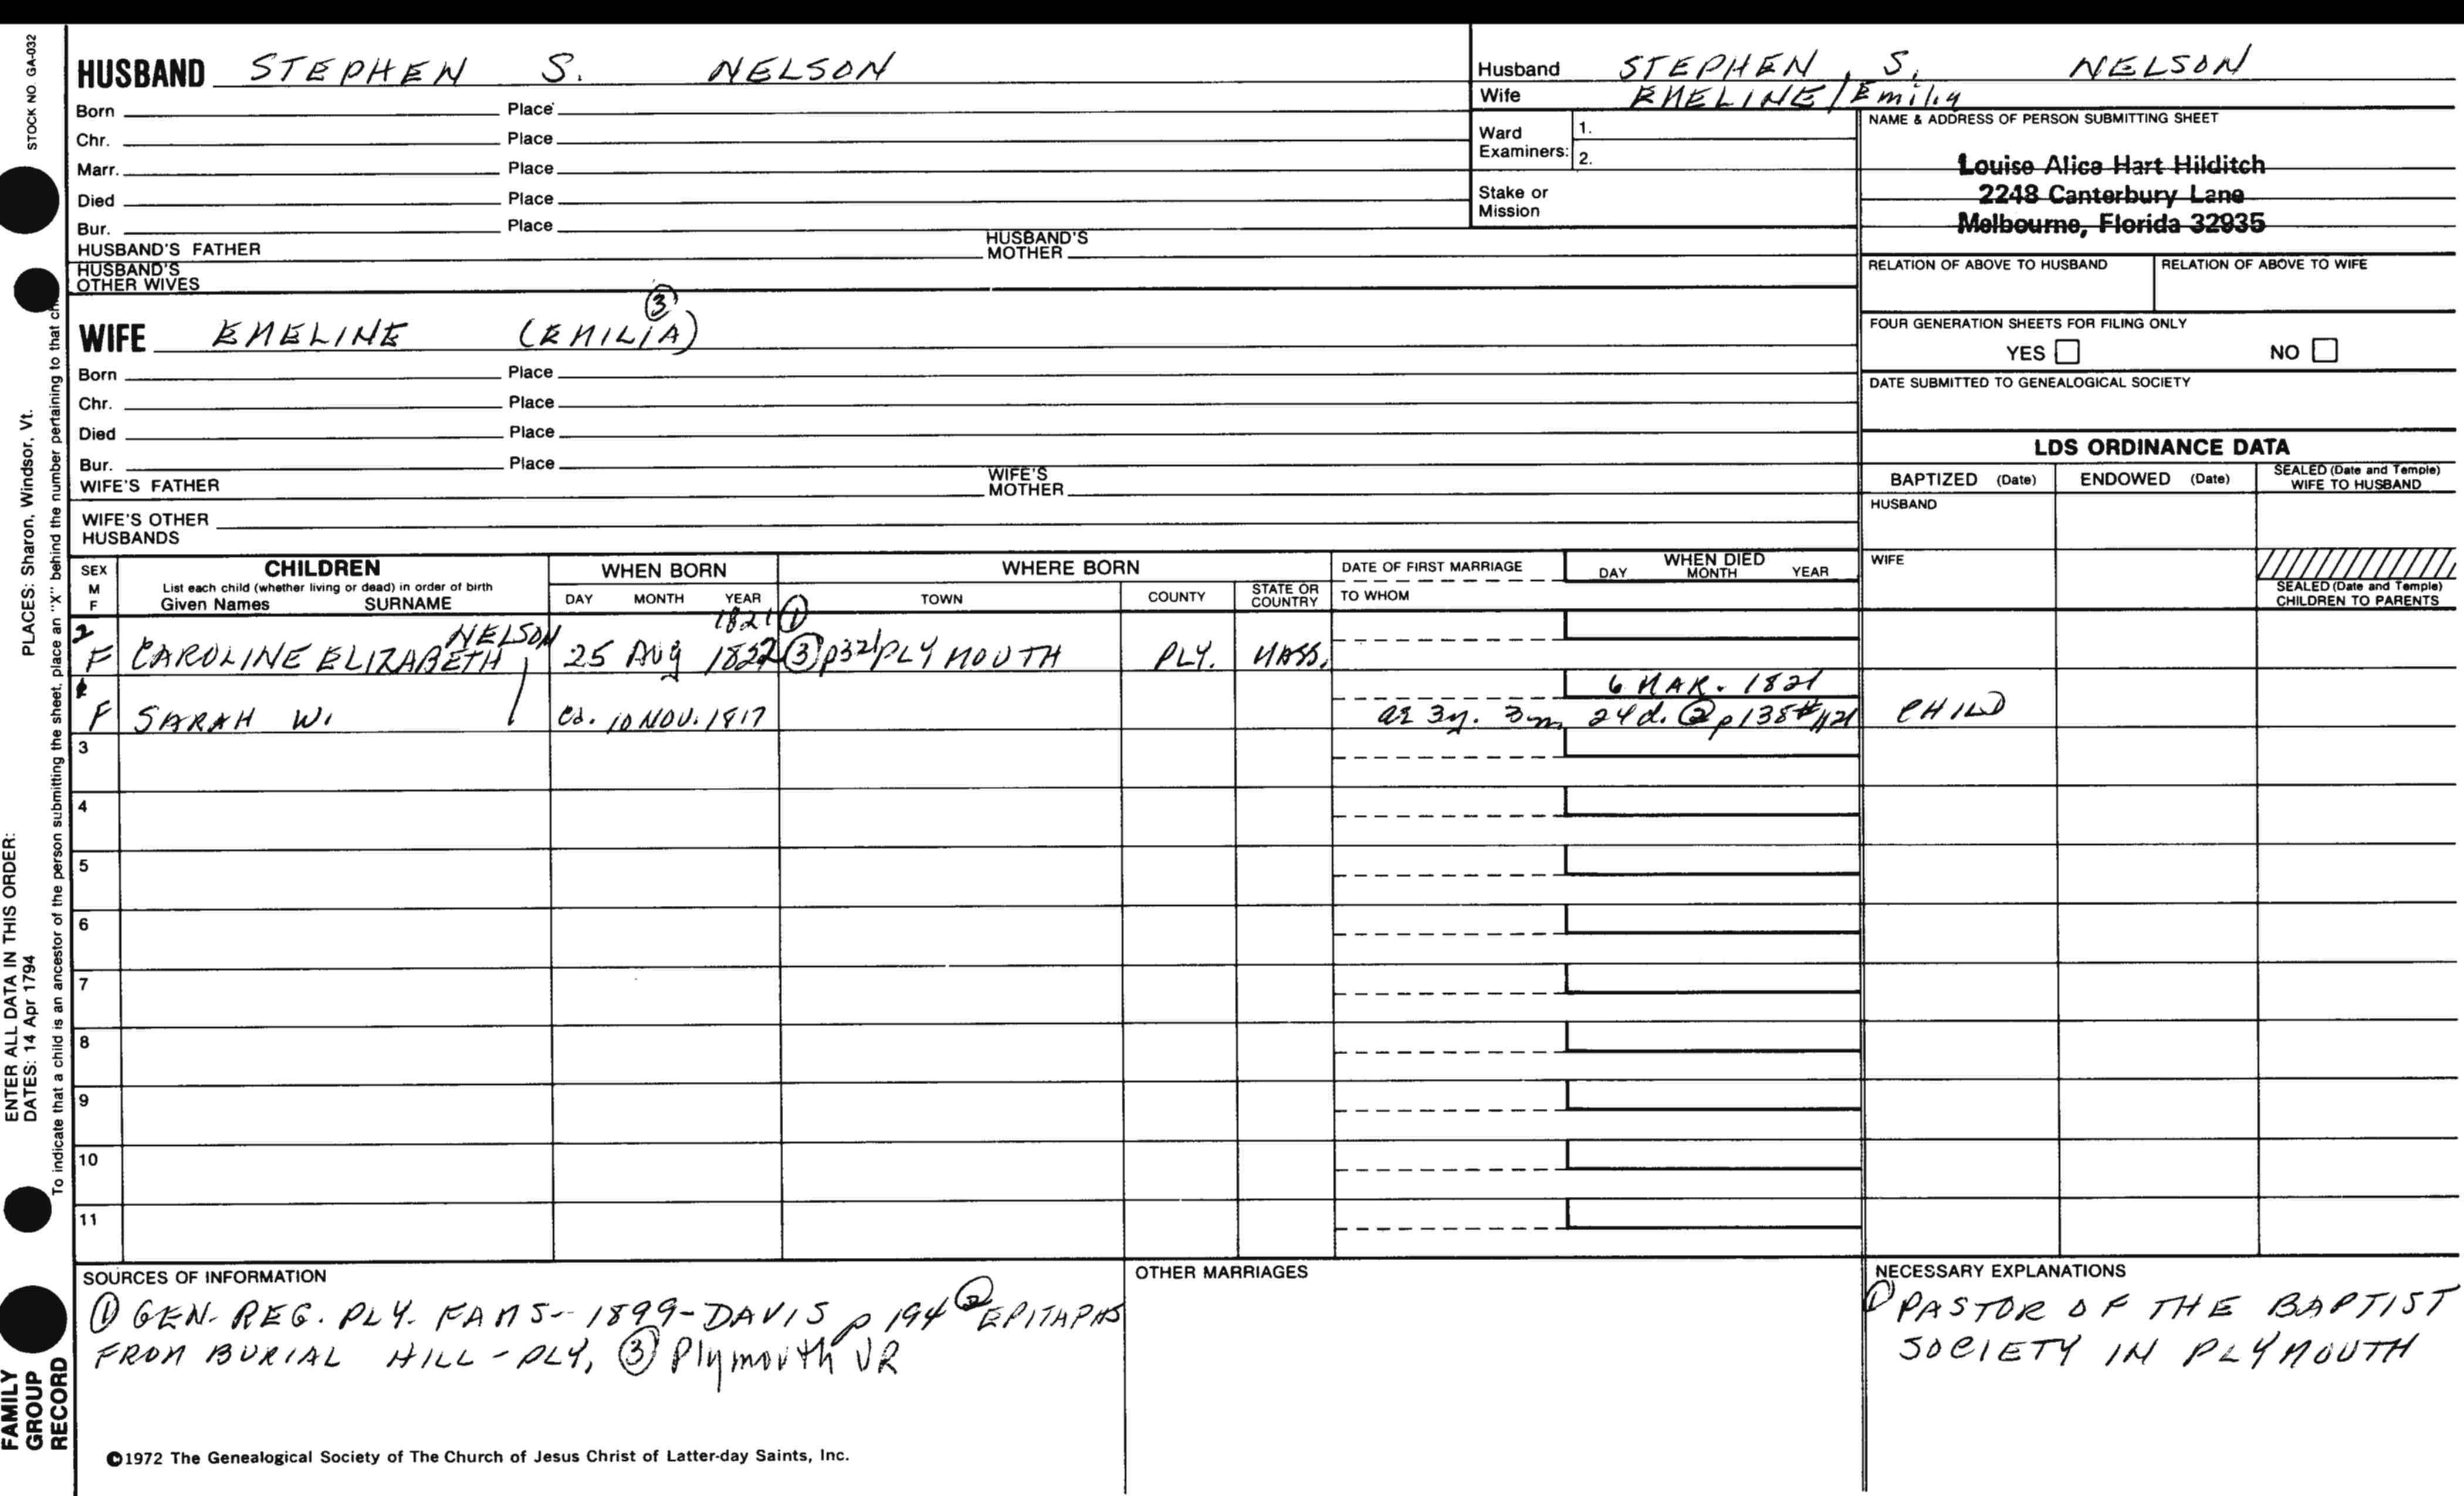 STOCK NO. GA-032
HUSBAND STEPHEN S. NELSON
Born Place
Chr. Place
Marr. Place
Died Place
Bur. Place
HUSBAND'S FATHER HUSBAND'S MOTHER
HUSBAND'S OTHER WIVES
③
WIFE EMELINE (EMILIA)
Born Place
Chr. Place
Died Place
Bur. Place
WIFE'S FATHER WIFE'S MOTHER
WIFE'S OTHER HUSBANDS
Husband STEPHEN S. NELSON
Wife EMELINE/Emily
Ward Examiners: 1.
2.
Stake or Mission
NAME & ADDRESS OF PERSON SUBMITTING SHEET
Louise Alice Hart Hilditch
2248 Canterbury Lane
Melbourne, Florida 32935
RELATION OF ABOVE TO HUSBAND RELATION OF ABOVE TO WIFE
FOUR GENERATION SHEETS FOR FILING ONLY
YES NO
DATE SUBMITTED TO GENEALOGICAL SOCIETY
LDS ORDINANCE DATA
BAPTIZED (Date) ENDOWED (Date) SEALED (Date and Temple) WIFE TO HUSBAND
HUSBAND
WIFE
SEALED (Date and Temple) CHILDREN TO PARENTS
SEX M F
CHILDREN
List each child (whether living or dead) in order of birth
Given Names SURNAME
WHEN BORN
DAY MONTH YEAR
WHERE BORN
TOWN COUNTY STATE OR COUNTRY
DATE OF FIRST MARRIAGE
TO WHOM
WHEN DIED
DAY MONTH YEAR
2 NELSON 1821 ①
F CAROLINE ELIZABETH 25 AUG 1822 ③ p321 PLYMOUTH PLY. MASS.
6 MAR. 1821
F SARAH W. ca. 10 NOV. 1817 ae 3y. 3m 24d. ② p138 #1121 CHILD
3
4
5
6
7
8
9
10
11
SOURCES OF INFORMATION
① GEN. REG. PLY. FAMS-- 1899-DAVIS p 194 ② EPITAPHS
FROM BURIAL HILL - PLY, ③ Plymouth VR
OTHER MARRIAGES
NECESSARY EXPLANATIONS
① PASTOR OF THE BAPTIST
SOCIETY IN PLYMOUTH
©1972 The Genealogical Society of The Church of Jesus Christ of Latter-day Saints, Inc.
PLACES: Sharon, Windsor, Vt.
ENTER ALL DATA IN THIS ORDER:
DATES: 14 Apr 1794
To indicate that a child is an ancestor of the person submitting the sheet, place an "X" behind the number pertaining to that
FAMILY
GROUP
RECORD